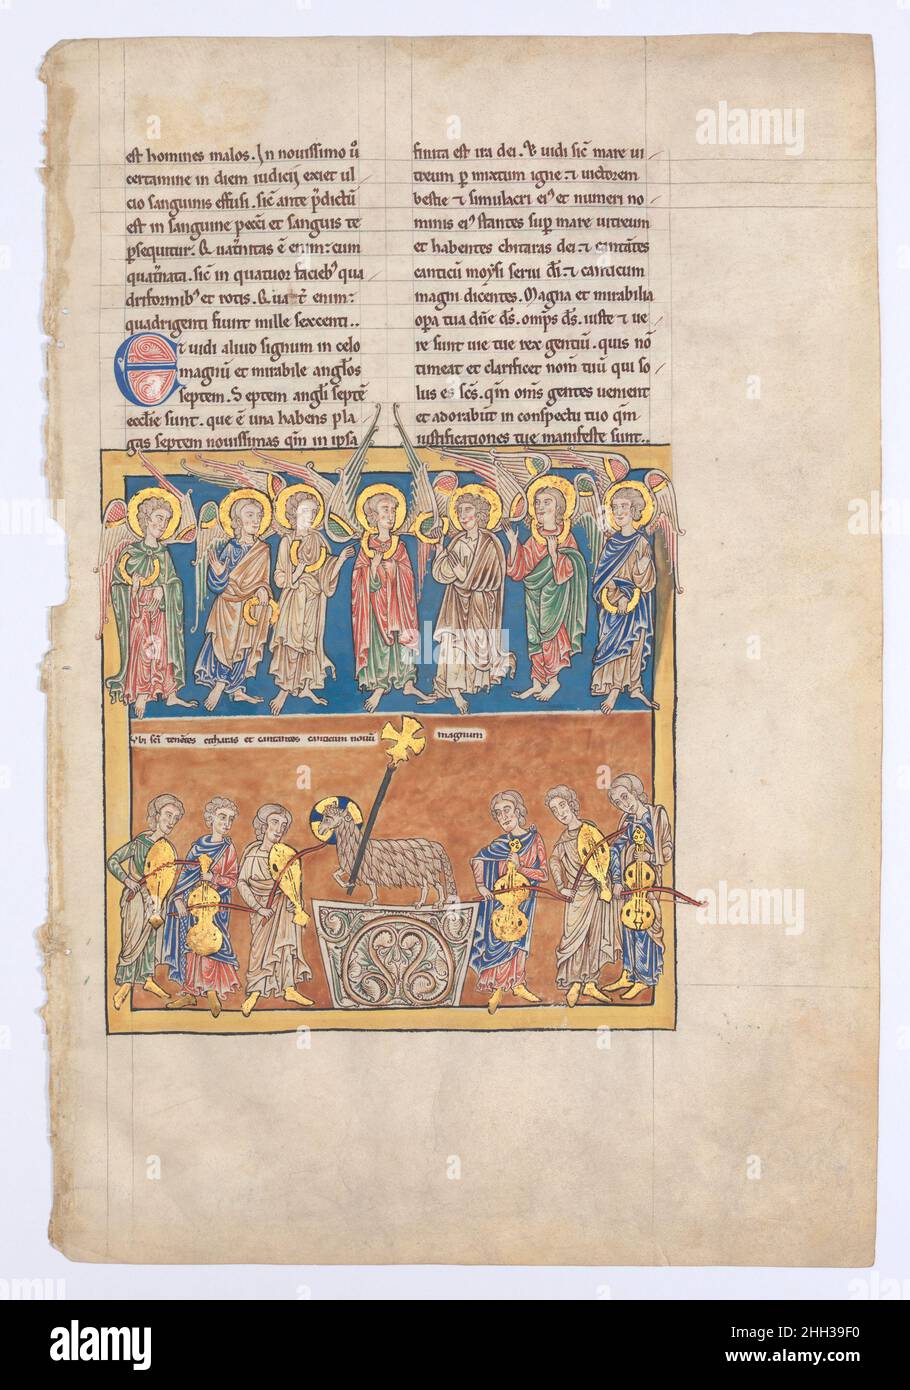 est homines malos. In novissimo ū
certamine in diem iudicij exiet ul
cio sanguinis effusi. sic̄ ante p̄dictū
est in sanguine pecc̄i et sanguis te
p̄sequitur. Quat̄nitas ē enim: cum
quat̄nata. sic̄ in quatuor facieb' qua
driformib' et rotis. Quat̄ ē enim:
quadrigenti fiunt mille sexcenti..
Et uidi aliud signum in celo
magnū et mirabile angl̄os
septem. Septem angl̄i septē
eccl̄ie sunt. que ē una habens pla
gas septem novissimas qm̄ in ipsa
finita est ira dei. & uidi sic̄ mare ui
treum p̄ mixtum igne & uictorem
bestie & simulacri ei' et numeri no
minis ei' stantes sup̄ mare uitreum
et habentes chitaras dei & cantātes
canticū moysi serui d̄i & canticum
magni dicentes. Magna et mirabilia
opa tua dn̄e d̄s. omp̄s d̄s. iuste & ue
re sunt uie tue rex gentiū. quis nō
timeat et clarificet nom̄ tuū qui so
lus es sc̄s. qm̄ om̄s gentes uenient
et adorabūt in conspectu tuo qm̄
iustificationes tue manifeste sunt..
Vbi sc̄i tenētes citharas et cantantes canticum nouū magnum
alamy
Image ID: 2HH39F0
www.alamy.com